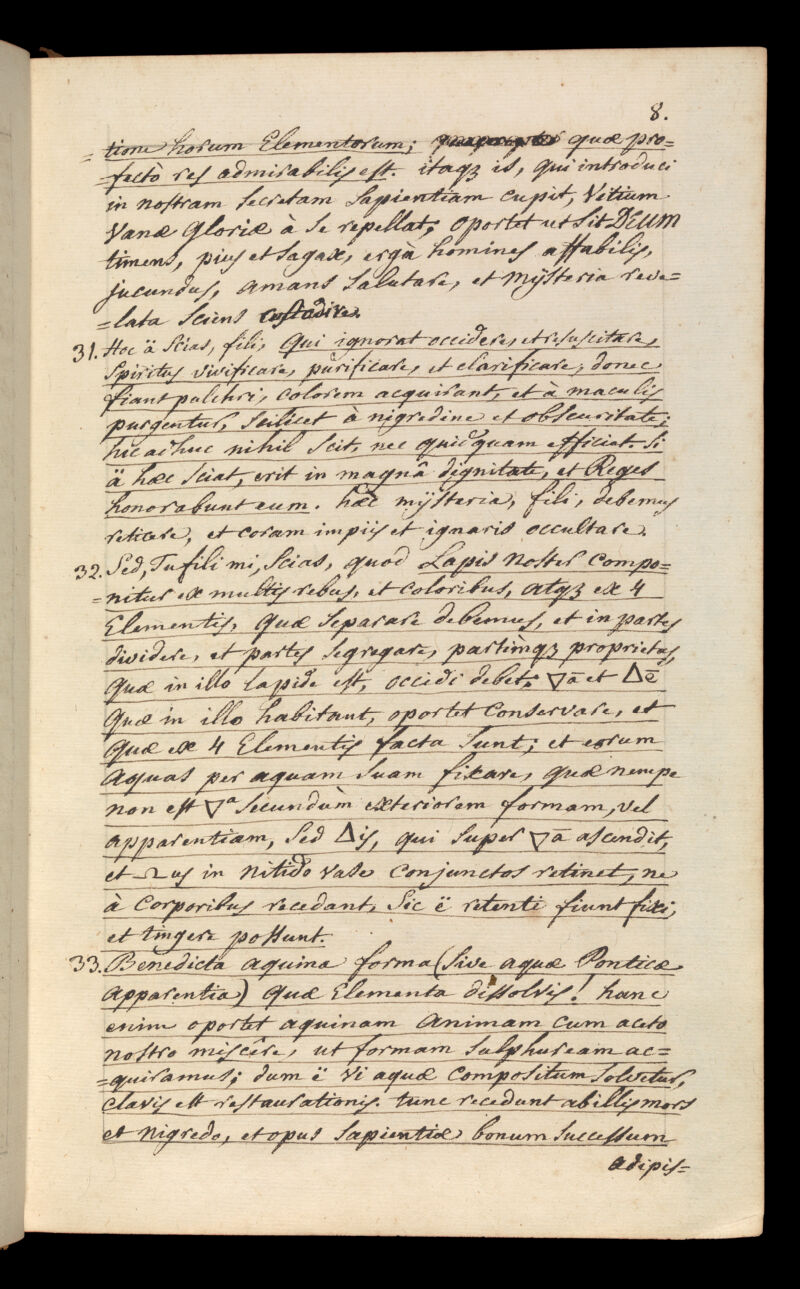 8.
=tione horum Elementorum; quæ pro=
=fectò res admirabilis est. itaqꝫ is, qui introduci
in nostram secretam sapientiam cupit, Vitium
Vanæ Gloriæ à se repellat; oportet ut sit DEUM
timens, pius et sagax, ergà homines affabilis,
jucundus, amans salutare, et mÿsteria reve=
=lata sciens custodire.
31. Hoc ä scias, fili, Qui ignorat occidere, et resuscitare,
Spiritus vivificare, purificare, et clarificare, donec
fiant pulchri, colorem acquirant, et à maculis
purgentur, scilicet à nigredine et obscuritate;
hic adhuc nihil scit, nec quidquam efficiat. Si
ä hæc sciat, erit in magnâ dignitate, et Reges
honorabunt eum. hæc mÿsteria, fili, debemus
reticere, et coram impiis et ignaris occultare.
32. Sed, Tu fili mi, scias, quod Lapis noster compo=
=nitur ex multis rebus, et coloribus, atqꝫ ex 4
Elementis, quæ separare debemus, et in partes
dividere, et partes segregare, partimqꝫ proprietas,
quæ in illo lapide est, occidi debet; 🜄ā et 🜂ē
quæ in illo habitant, oportet conservare, et
quæ ex 4 Elementis facta sunt; et eorum
aquas per aquam suam fixare, quæ nempe
non est 🜄ª secundùm exteriorem formam, vel
apparentiam, sed 🜂is, qui super 🜄ā ascendit,
et ♎us in nitido vase conjunctos retinet, ne
à corporibus recedant, Sic ë retenti fiunt fixi,
et tingere possunt.
33. Benedicta aquina forma (sive aquæ Ponticæ
apparentia) quæ Elementa dissolvis! hanc
enim oportet aquinam animam cum aceto
nostro miscêre, ut formam sulphuream ac=
=quiramus; dum ë vi aquæ compositum solvitur,
clavis est restaurationis. tunc recedunt ab illis mors
et nigredo, et opus sapientiæ bonum successum
adipis=